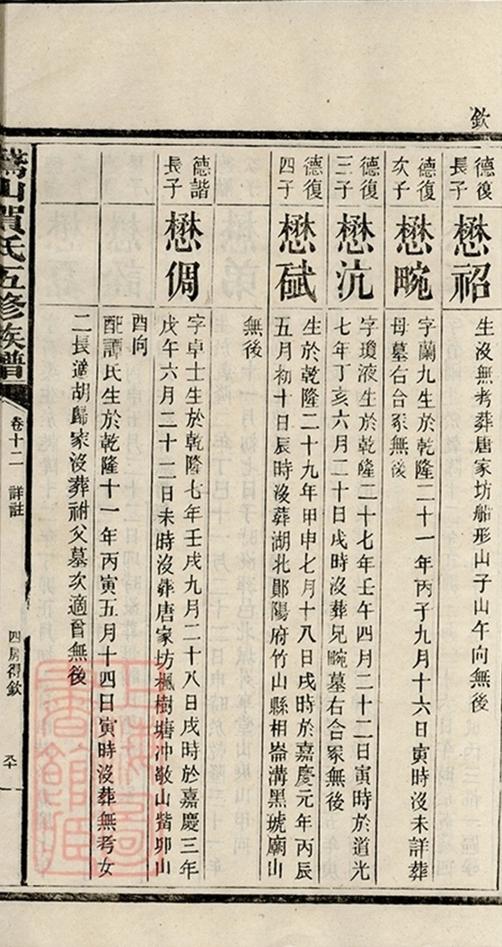 欽
德復
長子
懋祒
生沒無考葬唐家坊船形山子山午向無後
德復
次子
懋畹
字蘭九生於乾隆二十一年丙子九月十六日寅時沒未詳葬
母墓右合冢無後
德復
三子
懋沆
字瓊液生於乾隆二十七年壬午四月二十二日寅時於道光
七年丁亥六月二十日戌時沒葬兄畹墓右合冢無後
德復
四子
懋斌
生於乾隆二十九年甲申七月十八日戌時於嘉慶元年丙辰
五月初十日辰時沒葬湖北鄖陽府竹山縣相崙溝黑琥廟山
無後
德諧
長子
懋倜
字卓士生於乾隆七年壬戌九月二十八日戌時於嘉慶三年
戊午六月二十二日未時沒葬唐家坊楓樹塘冲敬山觜卯山
酉向
配譚氏生於乾隆十一年丙寅五月十四日寅時沒葬無考女
二長適胡歸家沒葬祔父墓次適曾無後
山賀氏五修族譜
卷十二 詳註
四房得欽